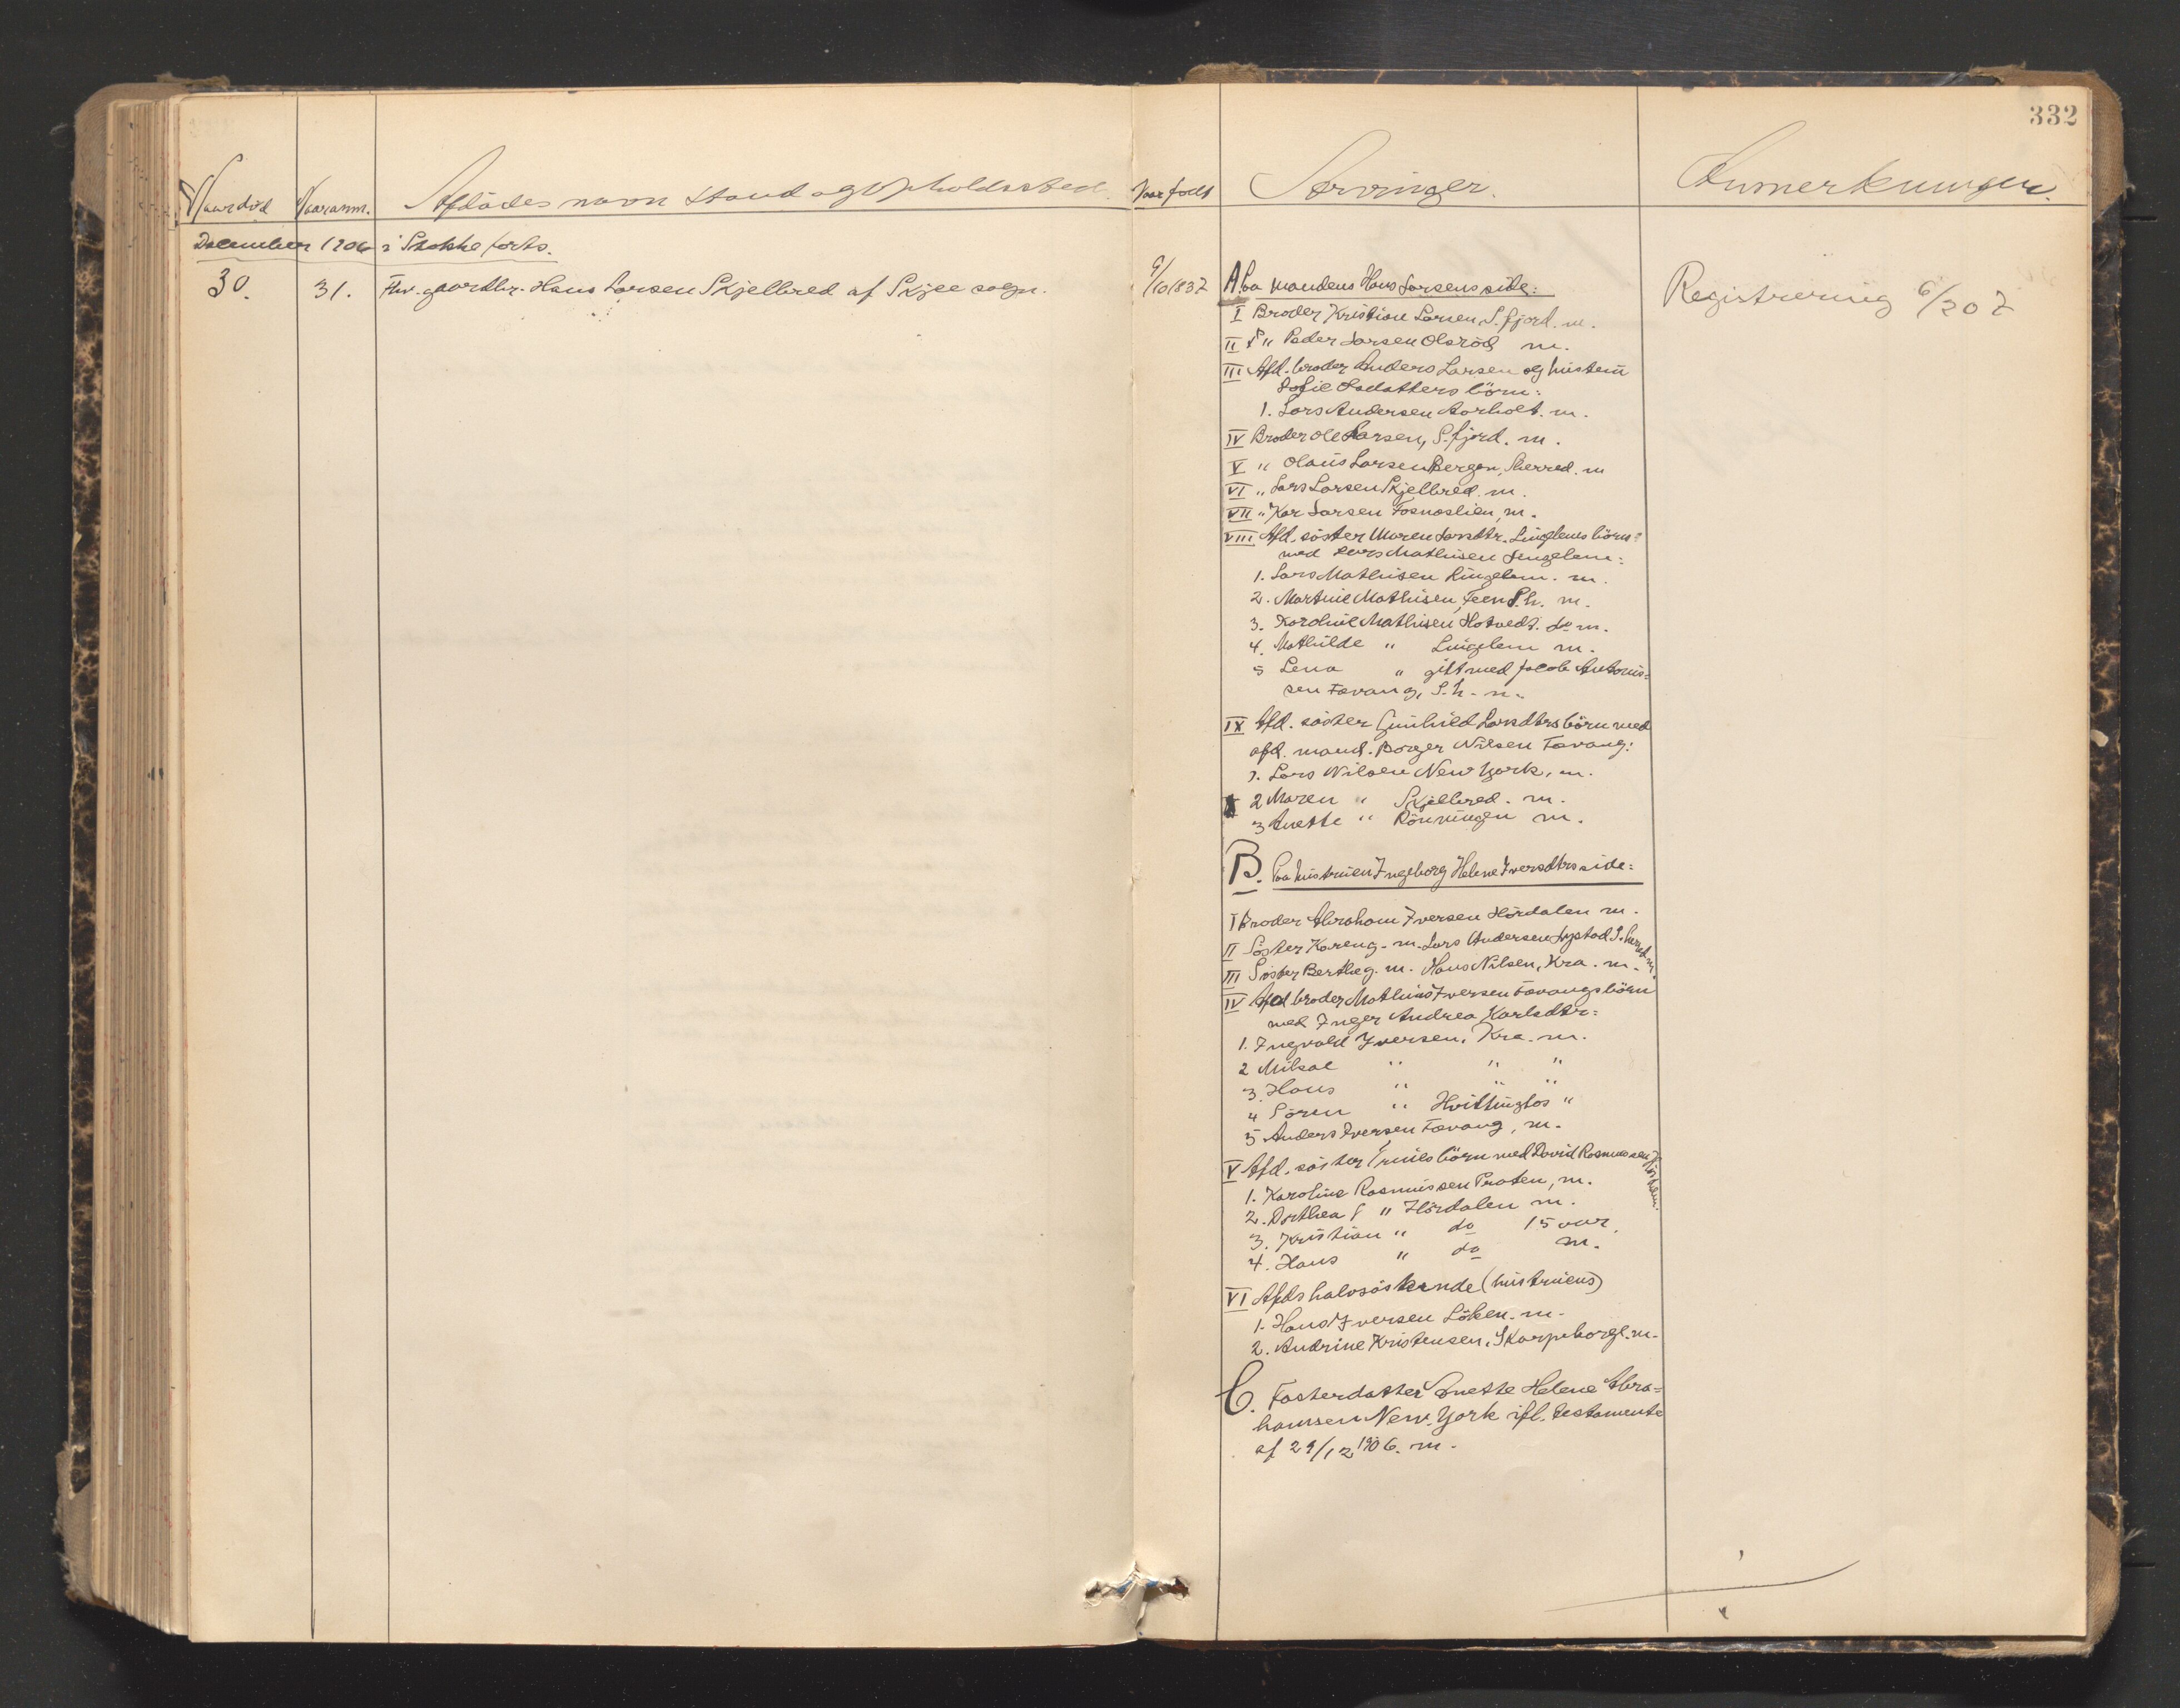 332
Naar död Naar anm. Afdödes navn stand og Opholdssted. Naar födt Arvinger. Anmerkninger.
December 1906 i Stokke forts.
30. 31. Fhv. gaardbr. Hans Larsen Skjelbred af Skjee sogn. 9/10 1837
A. Paa mandens Hans Larsens side: Registrering 6/2 07
I Broder Kristian Larsen, S.fjord. m.
II " Peder Larsen Olsröd m.
III Afd. broder Anders Larsen og hustru
Sofie Olsdatters börn:
1. Lars Andersen Aarholt. m.
IV Broder Ole Larsen, S.fjord. m.
V " Olaus Larsen Bergan, Sherred. m
VI " Lars Larsen Skjelbred. m.
VII " Kar Larsen Fosnaslien, m.
VIII Afd. söster Maren Larsdtr. Lingelems börn
med Mathisen Lingelem:
1. Lars Mathisen Lingelem. m.
2. Martine Mathisen, Feen S.h. m.
3. Karoline Mathisen Hotvedt. do m.
4. Mathilde " Lingelem m.
5 Lena " gift med Jacob Antonis=
sen Favang, S.h. m.
IX Afd. söster Gunhild Larsdtrs börn med
afd. mand. Borger Nilsen Favang:
1. Lars Nilsen New York, m.
2 Maren " Skjelbred. m.
3 Anette " Rönningen m.
B. Paa hustruen Ingeborg Helene Iversdtrs side:
I Broder Abraham Iversen Hördalen m.
II Söster Karen g. m. Lars Andersen Nystad S. herred m.
III Söster Berthe g. m. Hans Nilsen, Kra. m.
IV Afd broder Mathias Iversen Favangs börn
med Inger Andrea Karlsdtr:
1. Ingvald Iversen, Kra. m.
2 Mikael " " "
3. Hans " " "
4 Sören " Hvittingfos "
5 Anders Iversen Favang, m.
V Afd. söster börn med David Rasmussen Hördalen:
1. Karoline Rasmussen Praten, m.
2. Dorthea " Hördalen m.
3. Kristian " do 15 aar.
4. Hans " do m.
VI Afds halvsöskende (hustruens)
1. Hans Iversen Löken. m.
2. Andrine Kristensen, Skorpeborge. m.
C. Fosterdatter Anette Helene Abra=
hamsen New. York ifl. testamente
af 29/12 1906. m.